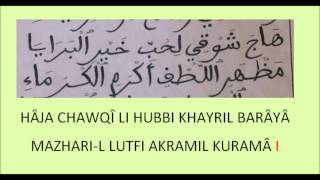 هَاجَ شَوْقِي لِحُبِّ خَيْرِ الْبَرَايَا
مَظْهَرِ اللُّطْفِ أَكْرَمِ الْكُرَمَاءِ
HÂJA CHAWQÎ LI HUBBI KHAYRIL BARÂYÂ
MAZHARI-L LUTFI AKRAMIL KURAMÂ I